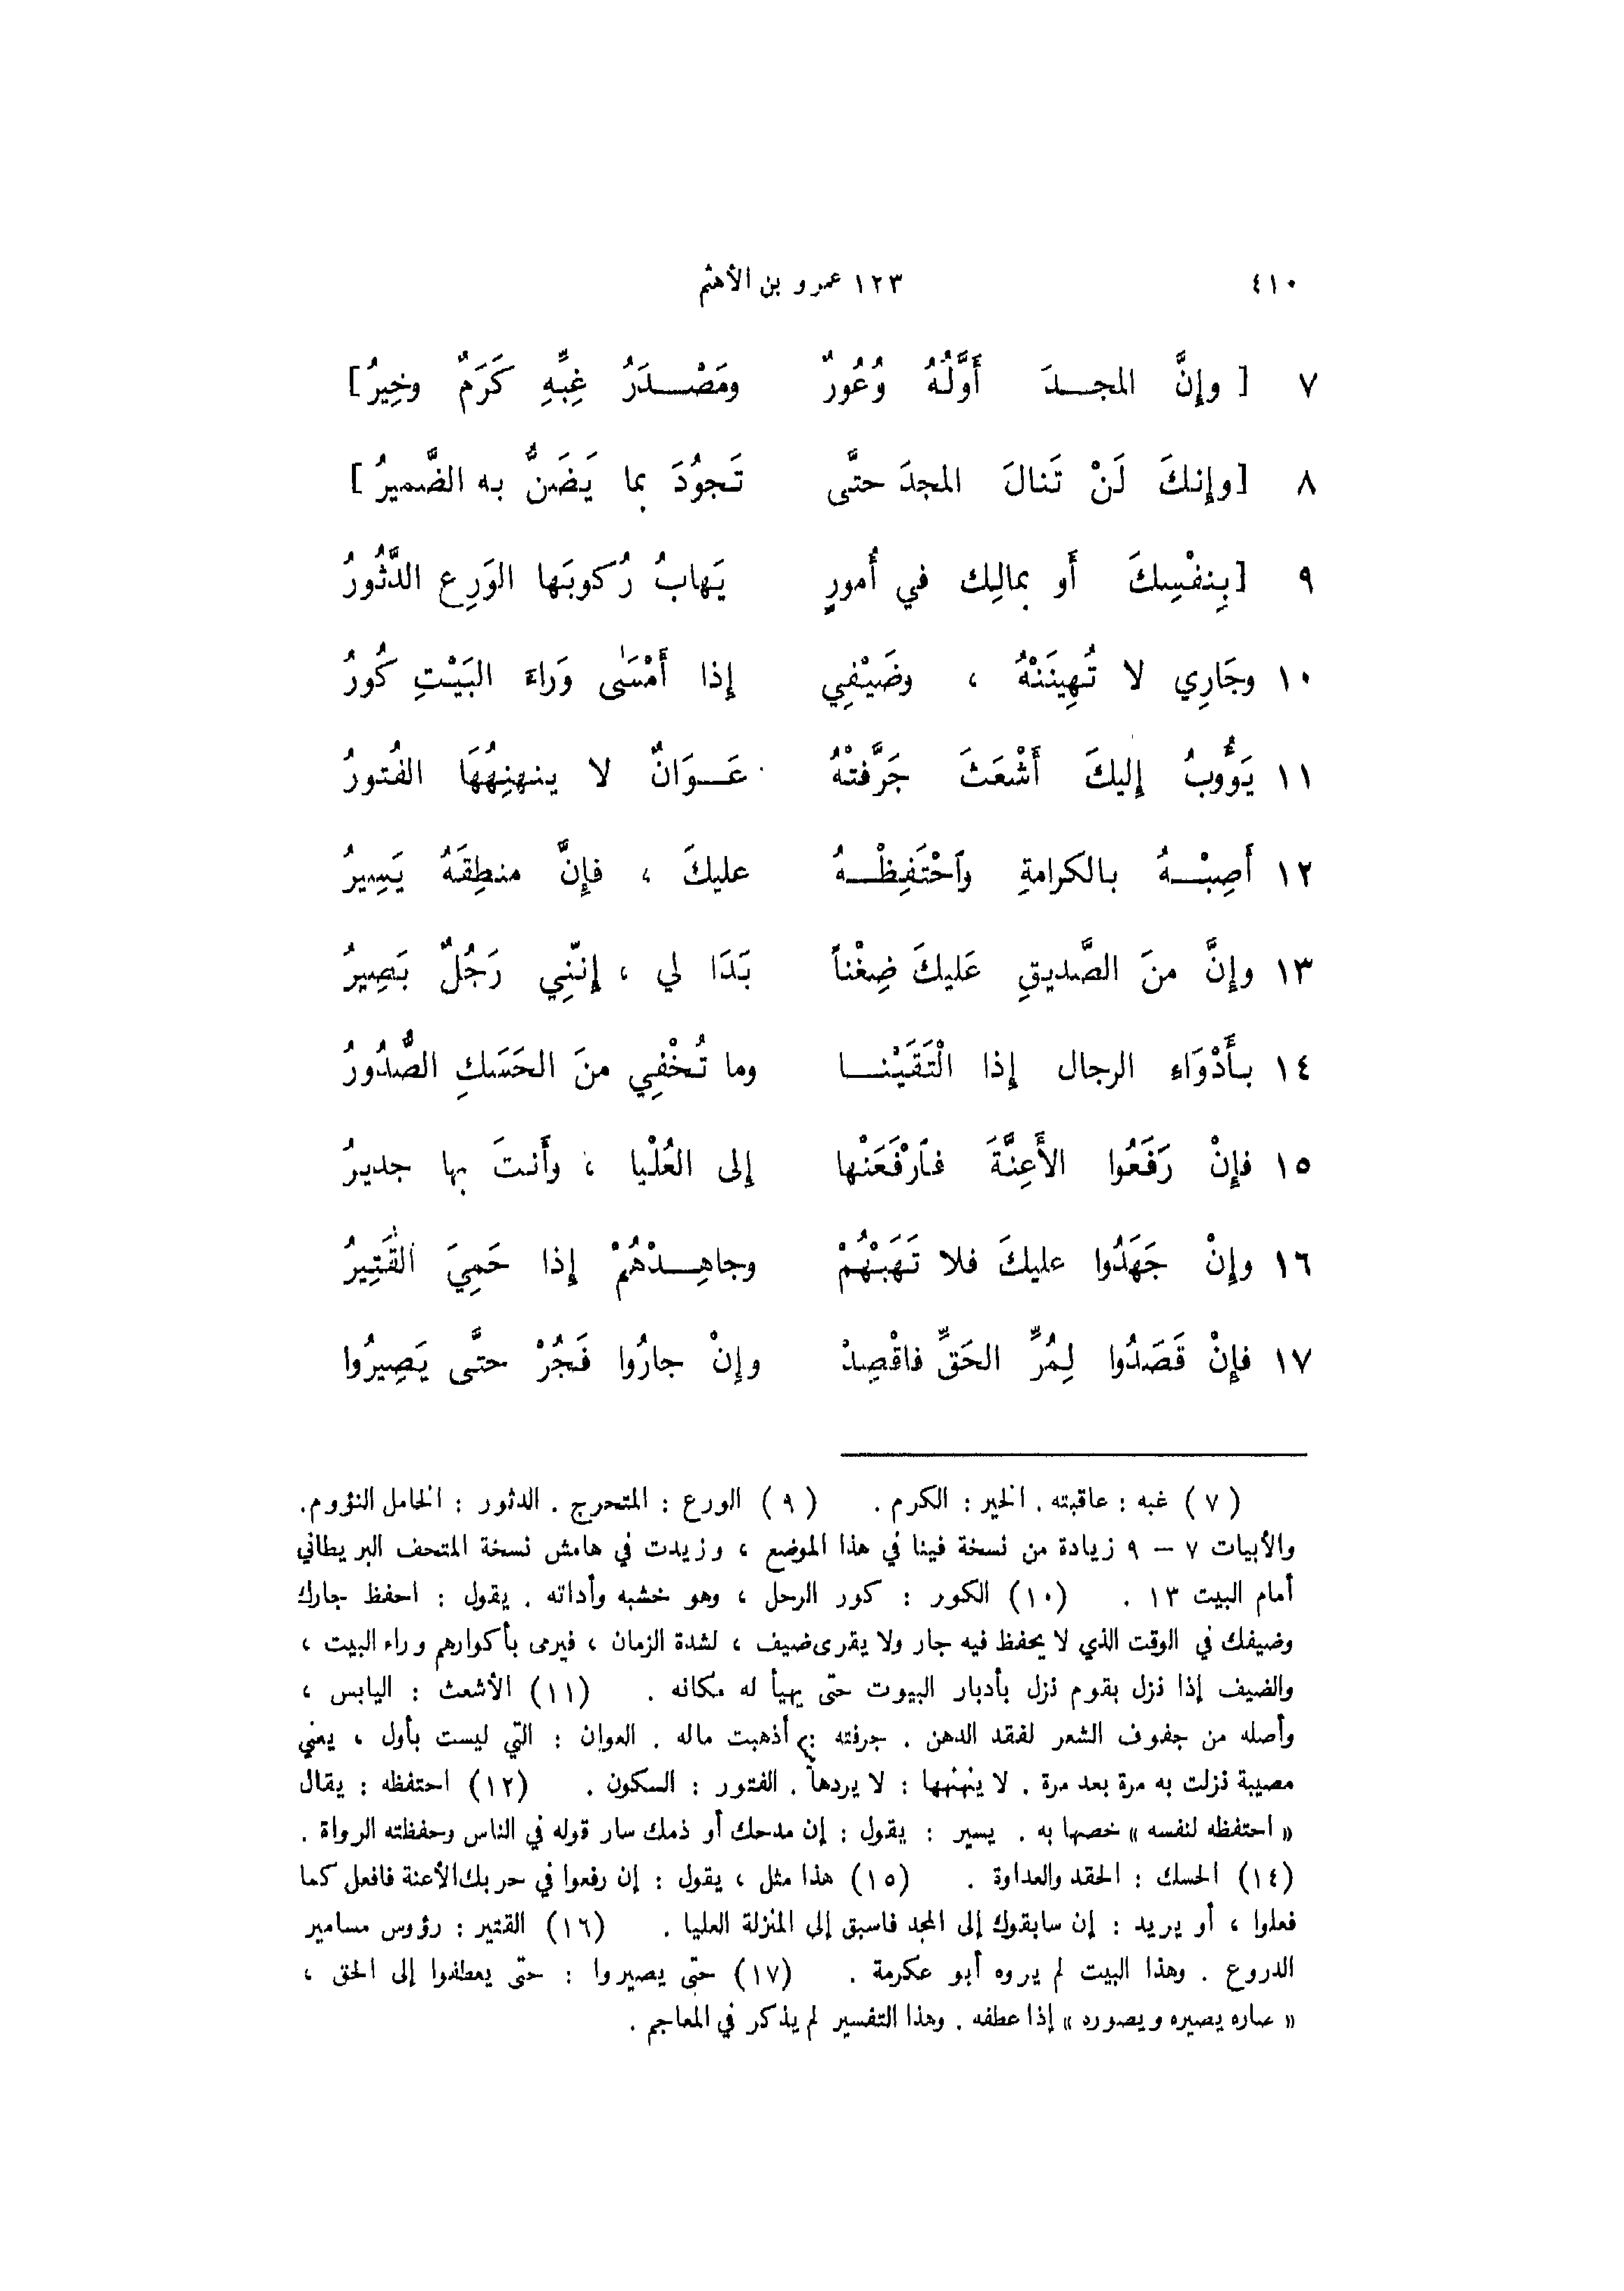 ٤١٠ ١٢٣ عمرو بن الأهتم
٧ [ وإِنَّ المجـدَ أَوَّلُهُ وُعُورٌ ومَصْـدَرُ غِبِّهِ كَرَمٌ وخِيرُ]
٨ [وإِنكَ لَنْ تَنالَ المجدَ حتَّى تَجودَ بما يَضَنُّ به الضَّميرُ]
٩ [بِنفْسِكَ أَو بمالِك في أُمورٍ يَهابُ رُكوبَها الوَرِع الدَّثُورُ
١٠ وجَارِي لا تُهِينَنْهُ ، وضَيْفِي إِذا أَمْسَىٰ وَراءَ البَيْتِ كُورُ
١١ يَؤُوبُ إِليكَ أَشْعَثَ جَرَّفتْهُ عَـوَانٌ لا ينهنِهُهَا الفُتورُ
١٢ أَصِبْـهُ بالكرامةِ وٱحْتَفِظْـهُ عليكَ ، فإِنَّ منطِقَهُ يَسِيرُ
١٣ وإِنَّ منَ الصَّديقِ عَليكَ ضِغْناً بَدَا لي ، إِنَّنِي رَجُلٌ بَصِيرُ
١٤ بأَدْوَاءِ الرجال إِذا الْتَقَيْنـا وما تُخْفِي منَ الحَسَكِ الصُّدُورُ
١٥ فإِنْ رَفَعُوا الأَعِنَّةَ فٱرْفَعَنْها إِلى العُلْيا ، وأَنتَ بها جديرُ
١٦ وإِنْ جَهَدُوا عليكَ فلا تَهَبْهُمْ وجاهِـدْهُمْ إِذا حَمِيَ القَتِيرُ
١٧ فإِنْ قَصَدُوا لِمُرِّ الحَقِّ فاقْصِدْ وإِنْ جارُوا فَجُرْ حتَّى يَصِيرُوا
( ٧ ) غبه : عاقبته . الخير : الكرم . ( ٩ ) الورع : المتحرج . الدثور : الخامل النؤوم .
والأبيات ٧ – ٩ زيادة من نسخة فينا في هذا الموضع ، وزيدت في هامش نسخة المتحف البريطاني
أمام البيت ١٣ . (١٠) الكور : كور الرحل ، وهو خشبه وأداته . يقول : احفظ جارك
وضيفك في الوقت الذي لا يحفظ فيه جار ولا يقرى ضيف ، لشدة الزمان ، فيرمى بأكوارهم وراء البيت ،
والضيف إذا نزل بقوم نزل بأدبار البيوت حتى يهيأ له مكانه . (١١) الأشعث : اليابس ،
وأصله من جفوف الشعر لفقد الدهن . جرفته : أذهبت ماله . العوان : التي ليست بأول ، يعني
مصيبة نزلت به مرة بعد مرة . لا ينهنهها : لا يردها . الفتور : السكون . (١٢) احتفظه : يقال
« احتفظه لنفسه » خصها به . يسير : يقول : إن مدحك أو ذمك سار قوله في الناس وحفظته الرواة .
(١٤) الحسك : الحقد والعداوة . (١٥) هذا مثل ، يقول : إن رفعوا في حربك الأعنة فافعل كما
فعلوا ، أو يريد : إن سابقوك إلى المجد فاسبق إلى المنزلة العليا . (١٦) القتير : رؤوس مسامير
الدروع . وهذا البيت لم يروه أبو عكرمة . (١٧) حتى يصيروا : حتى يعطفوا إلى الحق ،
« صاره يصيره ويصوره » إذا عطفه . وهذا التفسير لم يذكر في المعاجم .